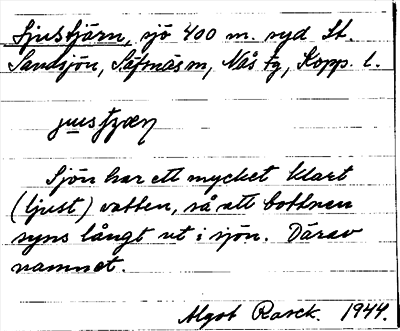 Ljustjärn, sjö 400 m. syd St.
Sandsjön, Säfsnäs m, Nås tg, Kopp. l.
Sjön har ett mycket klart
(ljust) vatten, så att bottnen
syns långt ut i sjön. Därav
namnet.
Algot Rosck. 1944.